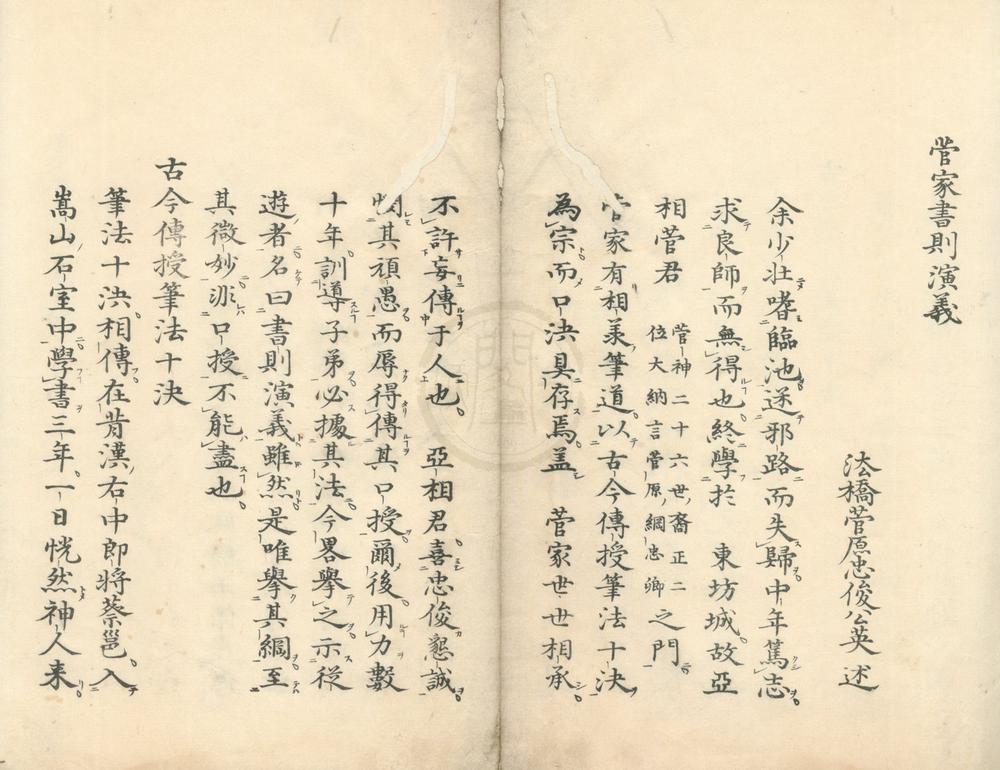 菅家書則演義
法橋菅原忠俊公英述
余少壮嗜臨池迷邪路而失歸中年篤志
求良師而無得也終學於　東坊城故亞
相菅君 菅神二十六世裔正二
位大納言菅原綱忠卿 之門
菅家有相羕筆道以古今傳授筆法十决
為宗而口决具存焉盖　菅家世世相承
不許妄傳于人也　亞相君喜忠俊懇誠
憫其頑愚而辱得傳其口授爾後用力數
十年訓導子弟必據其法今畧擧之示從
遊者名曰書則演義雖然是唯擧其綱至
其微妙非口授不能盡也
古今傳授筆法十决
筆法十决相傳在昔漢右中郎將蔡邕入
嵩山石室中學書三年一日恍然神人来